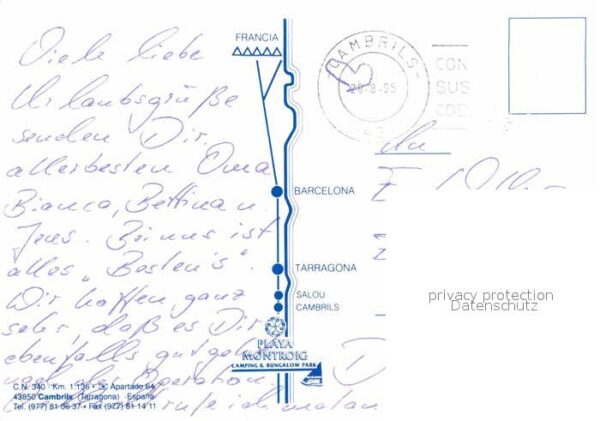 Viele liebe
Urlaubsgrüße
senden Dir,
allerbesten Oma
Bianca, Bettina u.
Jens. Bei uns ist
alles „Bestens".
Wir hoffen ganz
sehr, daß es Dir
ebenfalls gut geht
Operation
rufe ich mal an
FRANCIA
BARCELONA
TARRAGONA
SALOU
CAMBRILS
PLAYA
MONTROIG
CAMPING & BUNGALOW PARK
C.N. 340 - Km. 1.136 - Apartado 64
43850 Cambrils (Tarragona) España
Tel. (977) 81 06 37 • Fax (977) 81 14 11
CAMBRILS
28-8-95
CON
SUS
CDE
An
privacy protection
Datenschutz